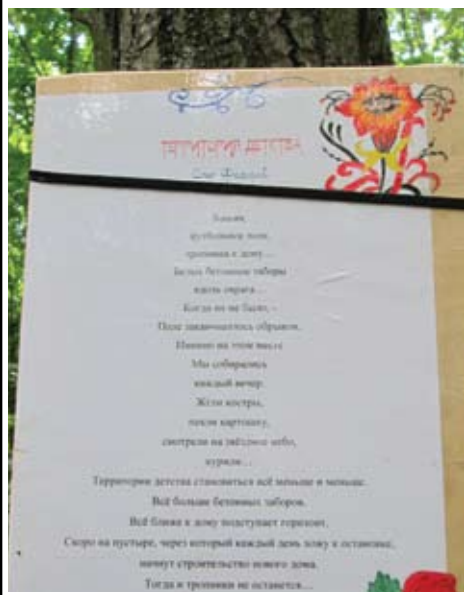 ТЕРРИТОРИЯ ДЕТСТВА
футбольное поле,
тропинка к дому…
Белые бетонные заборы
вдоль оврага…
Когда их не было, –
Поле заканчивалось обрывом,
Именно на этом месте
Мы собирались
каждый вечер.
Жгли костры,
пекли картошку,
смотрели на звёздное небо,
курили…
Территория детства становиться всё меньше и меньше.
Всё больше бетонных заборов.
Всё ближе к дому подступает горизонт.
Скоро на пустыре, через который каждый день хожу к остановке,
начнут строительство нового дома.
Тогда и тропинки не останется…